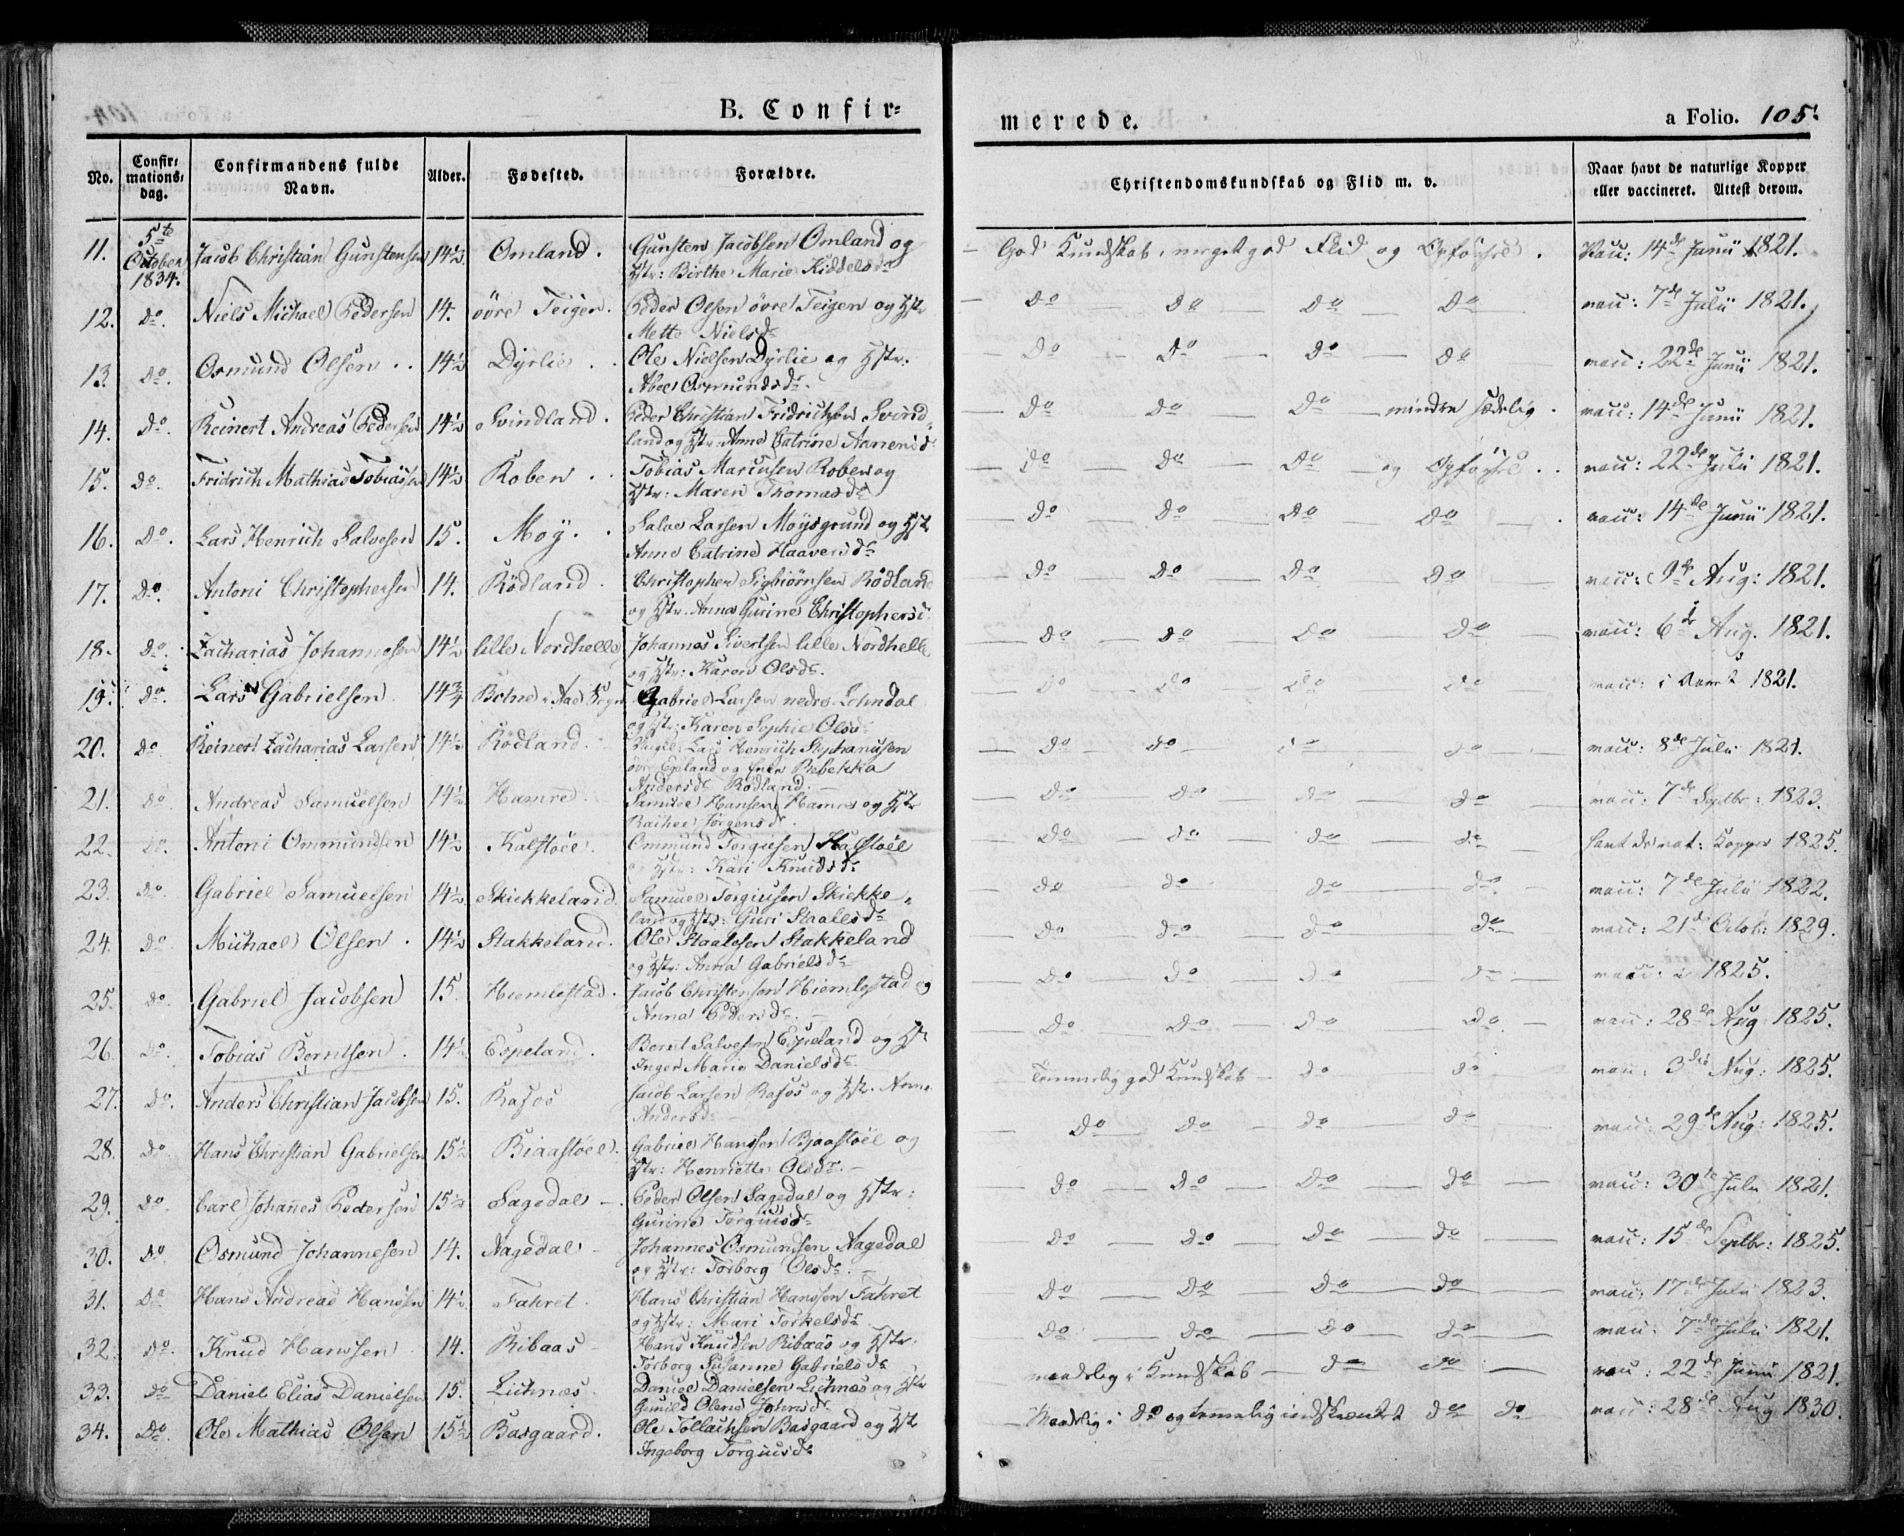 B. Confir=
merede.
a Folio. 105.
No.
Confir=
mations=
dag.
Confirmandens fulde
Navn.
Alder.
Fødested.
Forældre.
Christendomskundskab og Flid m. v.
Naar havt de naturlige Kopper
eller vaccineret. Attest derom.
5te
October
1834.
11. Jacob Christian Gunstensen 14½ Omland. Gunsten Jacobsen Omland og
Hstr: Birthe Marie Kiddelsdr
God Kundskab, meget god Flid og Opførsel. Vacc: 14de Junii 1821.
12. do. Niels Michael Pedersen 14. øvre Teigen. Peder Olsen øvre Teigen og Hstr
Mette Nielsdr
do do do do vacc: 7de Julii 1821.
13. do. Osmund Olsen 14½ Dyrlie Ole Nielsen Dyrlie og Hstr.
Abel Osmundsdr
do do do do vacc: 22de Junii 1821.
14. do. Reinert Andreas Pedersen 14½ Svindland. Peder Christian Fridrichsen Svind
land og Hstr: Anne Catrine Aanensdr
do do do mindre sædelig. vacc: 14de Junii 1821.
15. do. Fridrich Mathias Tobiassen 14½ Roben Tobias Marcusen Roben og
Hstr: Maren Thomasdr
do do do og Opførsel vacc: 22de Julii 1821.
16. do. Lars Henrich Salvesen 15. Moy. Salve Larsen Moysgrund og Hstr
Anne Catrine Haaversdr
do do do do vacc: 14de Junii 1821.
17. do. Antoni Christophersen 14. Rödland Christopher Sigbiørnsen Rödland
og Hstr. Anna Gurine Christophersd
do do do do vacc: 9de Aug: 1821.
18. do. Zacharias Johannesen 14½ lille Nordhelle Johannes Sivertsen lille Nordhelle
og Hstr: Karen Olsdr.
do do do do vacc: 6de Aug. 1821.
19. do. Lars Gabrielsen 14¾ Gabriel Larsen nedre Lohndal
og Hstr: Karen Sophie Olsdr
do do do do vacc: i 1821.
20. do Reinert Zacharias Larsen 14½ Rödland. Lars Henrich Stephanusen
øvre Egeland og Rebekka
Andersdr Rödland.
do do do do vacc: 8de Julii 1821.
21. do Andreas Samuelsen 14½ Hamre. Samuel Hansen Hamre og Hstr
Rachel Jørgensdr.
do do do do vacc: 7de Septbr: 1823.
22. do. Antoni Ommundsen 14½ Kalstöel. Ommund Torgiesen Kalstöel
og Hstr: Kari Knudsdr
do do do do havt de nat: Kopper 1825.
23. do. Gabriel Samuelsen 14½ Skiekkeland. Samuel Torgiusen Skiekke
land og Hstr: Guri Staalesdr
do do do do. vacc: 7de Julii 1822.
24. do. Michael Olsen. 14½ Stakkeland. Ole Staalesen Stakkeland
og Hstr: Anna Gabrielsdr
do do do do vacc: 21de Octob: 1829.
25. do. Gabriel Jacobsen 15. Hiemlestad. Jacob Christensen Hiemlestad og
Anna Pedersdr.
do do do do vacc: i 1825.
26. do. Tobias Berntsen. 14½ Espeland. Bernt Salvesen Espeland og Hstr
Inger Marie Danielsdr
do do do do vacc: 28de Aug: 1825.
27. do. Anders Christian Jacobsen 15. Rafos Jacob Larsen Rafos og Hstr. Anna
Andersdr
Temmelig god Kundskab do do vacc: 3die Aug: 1825.
28. do Hans Christian Gabrielsen 15½ Biaastöel. Gabriel Hanssen Bjaastöel og
Hstr: Henriette Olsdr.
do do do do vacc: 29de Aug: 1825.
29. do. Carl Johannes Pedersen 15½ Sagedal Peder Olsen Sagedal og Hstr:
Gurine Torgiusdr
do do do do vacc: 30de Julii 1821.
30. do. Osmund Johannesen 14. Aagedal Johannes Osmundsen Aagedal
og Hstr: Torborg Olsdr.
do do do do vacc: 15de Septbr: 1825.
31. do Hans Andreas Hanssen 14½ Fahret. Hans Christian Hanssen Fahret
og Hstr: Mari Torkelsdr
do do do do vacc: 17de Julii 1823.
32. do. Knud Hanssen 14. Ribaas Hans Knudsen Ribaas og Hstr.
Torborg Susanne Gabrielsdr
do do do do vacc: 7de Julii 1821.
33. do Daniel Elias Danielsen 15. Lichnæs. Daniel Danielsen Lichnæs og Hstr
Gunild Olene Johnsdr
maadelig i Kundskab do do vacc: 22de Junii 1821.
34. do. Ole Mathias Olsen 15½ Basgaard. Ole Tollachsen Basgaard og Hstr
Ingeborg Torgiusdr
Maadelig i do og temmelig indskrænket do do vacc: 28de Aug 1830.